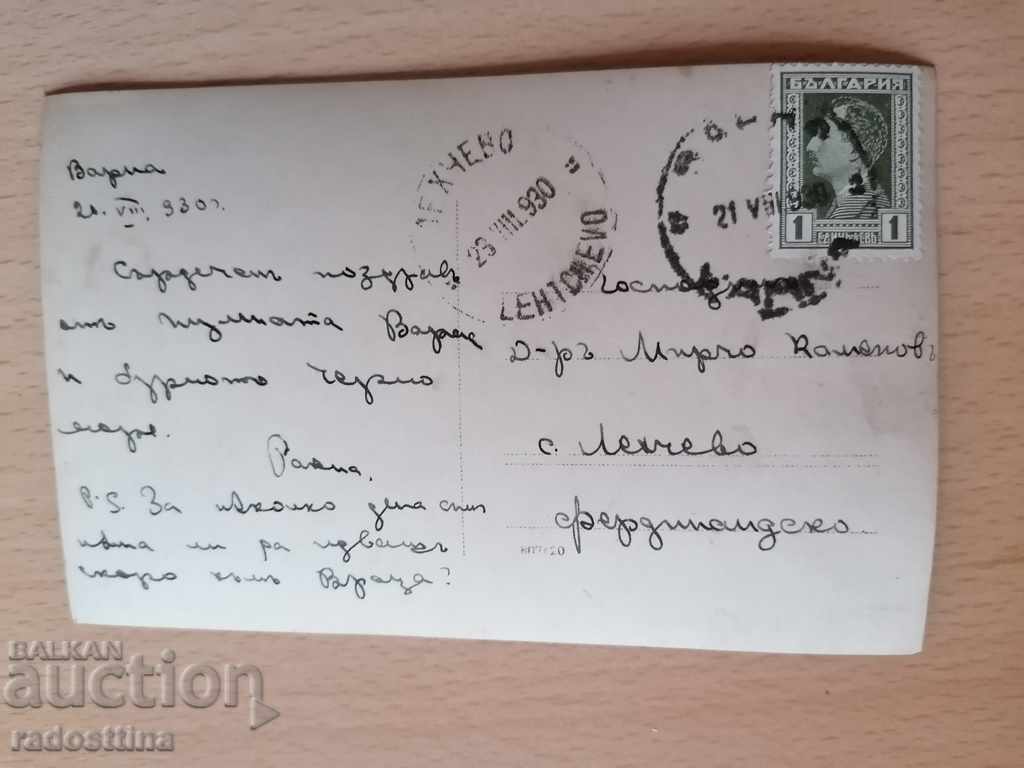 Варна
21. VIII. 930 г.
Сърдеченъ поздравъ
отъ шумната Варна
и бурното Черно
море.
Ранна.
P.S. За нѣколко дена съм
нѣма ли да идвашъ
скоро къмъ Враца?
ЛЕХЧЕВО
23 VIII.930
21 VIII.930
БЪЛГАРИЯ
1 1
Господинъ
Д-ръ Мирчо Каляновъ
с. Лехчево
Фердинандско
BALKAN
auction
radosttina